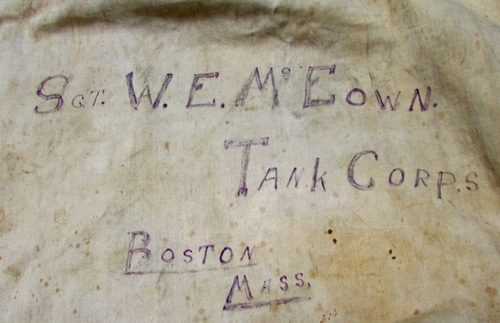 Sgt. W. E. McEown.
Tank Corps
Boston
Mass.